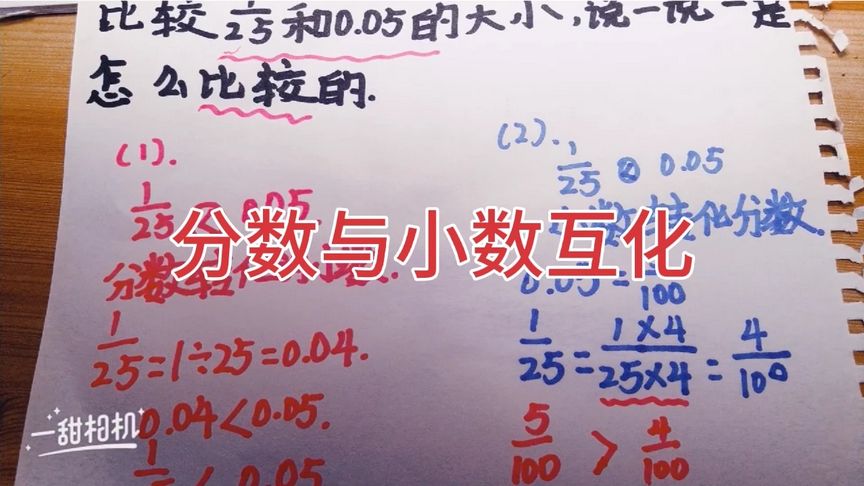 比较1/25和0.05的大小,说一说一是
怎么比较的.
(1).
1/25 < 0.05.
分数
1/25=1÷25=0.04.
0.04<0.05.
1/25<0.05
(2).
1/25 0.05
数转化分数.
0.05= /100
1/25=1×4/25×4=4/100
5/100 > 4/100
分数与小数互化
一甜相机